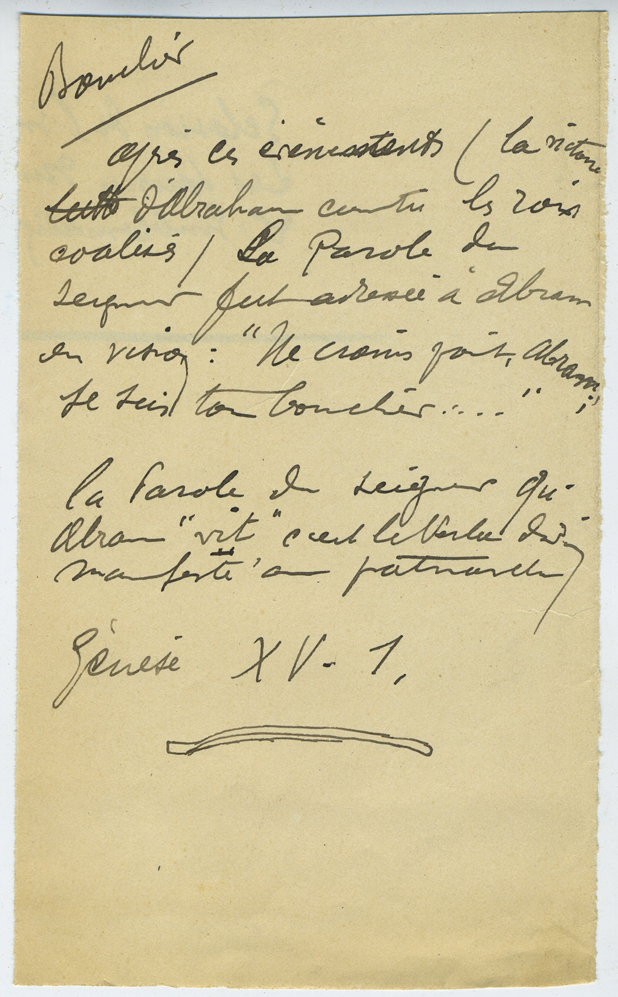 Bouclier
après ces évènements / la victoire
lutte d'Abraham contre les rois
coalisés / La Parole du
Seigneur fut adressée à Abram
en vision : "Ne crains point, Abram;
Je suis ton bouclier....."
la Parole du Seigneur qu'
Abram "vit" c'est le Verbe divin
manifesté au patriarche
Génèse XV- 1,